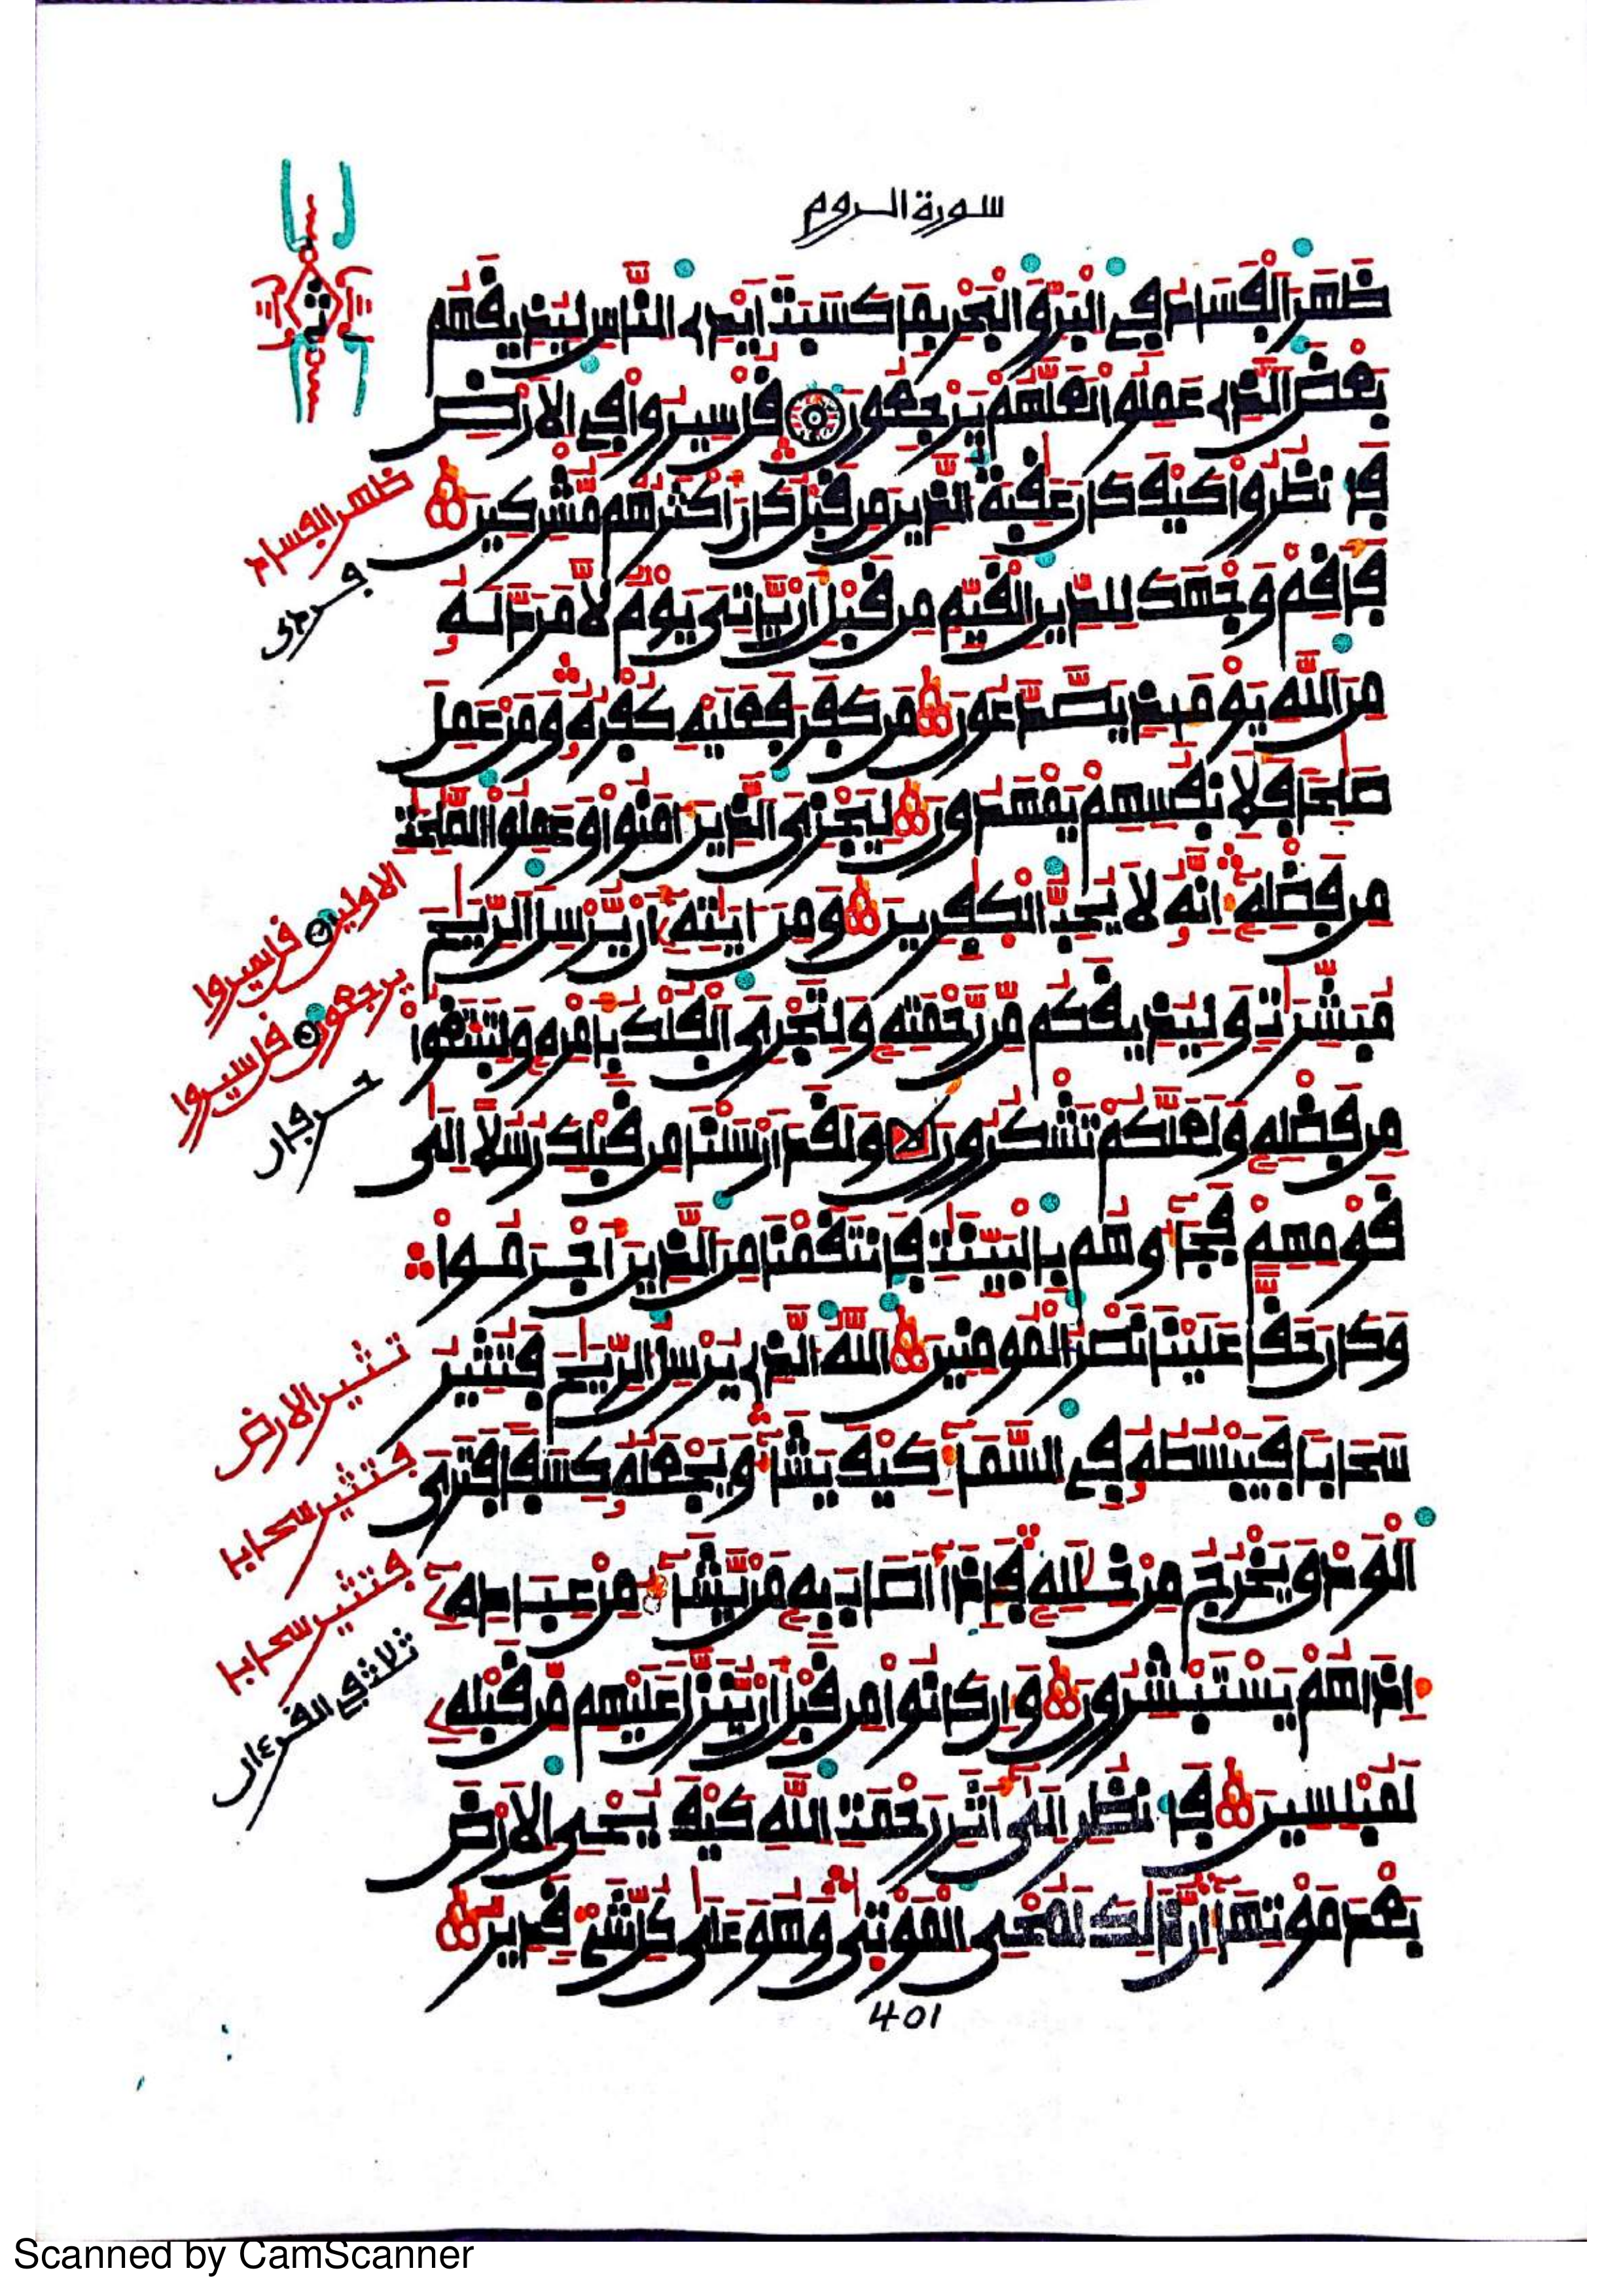 سورة الروم
ظَهَرَ الْفَسَادُ فِي الْبَرِّ وَالْبَحْرِ بِمَا كَسَبَتْ أَيْدِي النَّاسِ لِيُذِيقَهُم
بَعْضَ الَّذِي عَمِلُوا لَعَلَّهُمْ يَرْجِعُونَ فَاسِيرُوا فِي الْأَرْضِ
فَانظُرُوا كَيْفَ كَانَ عَٰقِبَةُ الَّذِينَ مِن قَبْلُ كَانَ أَكْثَرُهُم مُّشْرِكِينَ
فَأَقِمْ وَجْهَكَ لِلدِّينِ الْقَيِّمِ مِن قَبْلِ أَن يَّاتِيَ يَوْمٌ لَّا مَرَدَّ لَهُ
مِنَ اللَّهِ يَوْمَئِذٍ يَصَّدَّعُونَ مَن كَفَرَ فَعَلَيْهِ كُفْرُهُ وَمَنْ عَمِلَ
صَٰلِحًا فَلِأَنفُسِهِمْ يَمْهَدُونَ لِيَجْزِيَ الَّذِينَ ءَامَنُوا وَعَمِلُوا الصَّٰلِحَٰتِ
مِن فَضْلِهِ إِنَّهُ لَا يُحِبُّ الْكَٰفِرِينَ وَمِنْ ءَايَٰتِهِ أَن يُّرْسِلَ الرِّيَٰحَ
مُبَشِّرَٰتٍ وَلِيُذِيقَكُم مِّن رَّحْمَتِهِ وَلِتَجْرِيَ الْفُلْكُ بِأَمْرِهِ وَلِتَبْتَغُوا
مِن فَضْلِهِ وَلَعَلَّكُمْ تَشْكُرُونَ وَلَقَدْ أَرْسَلْنَا مِن قَبْلِكَ رُسُلًا إِلَىٰ
قَوْمِهِمْ فَجَاءُوهُم بِالْبَيِّنَٰتِ فَانتَقَمْنَا مِنَ الَّذِينَ أَجْرَمُوا
وَكَانَ حَقًّا عَلَيْنَا نَصْرُ الْمُومِنِينَ اللَّهُ الَّذِي يُرْسِلُ الرِّيَٰحَ فَتُثِيرُ
سَحَابًا فَيَبْسُطُهُ فِي السَّمَاءِ كَيْفَ يَشَاءُ وَيَجْعَلُهُ كِسَفًا فَتَرَى
الْوَدْقَ يَخْرُجُ مِنْ خِلَٰلِهِ فَإِذَا أَصَابَ بِهِ مَن يَّشَاءُ مِنْ عِبَادِهِ
إِذَا هُمْ يَسْتَبْشِرُونَ وَإِن كَانُوا مِن قَبْلِ أَن يُّنَزَّلَ عَلَيْهِم مِّن قَبْلِهِ
لَمُبْلِسِينَ فَانظُرْ إِلَىٰ أَثَرِ رَحْمَتِ اللَّهِ كَيْفَ يُحْيِ الْأَرْضَ
بَعْدَ مَوْتِهَا إِنَّ ذَٰلِكَ لَمُحْيِ الْمَوْتَىٰ وَهُوَ عَلَىٰ كُلِّ شَيْءٍ قَدِيرٌ
401
ظهر الفساد
الاولين فاسيروا
يرجعون فاسيروا
تثير الارض
فتثير سحابا
فتثير سحابا
ثلاث في القرءان
Scanned by CamScanner